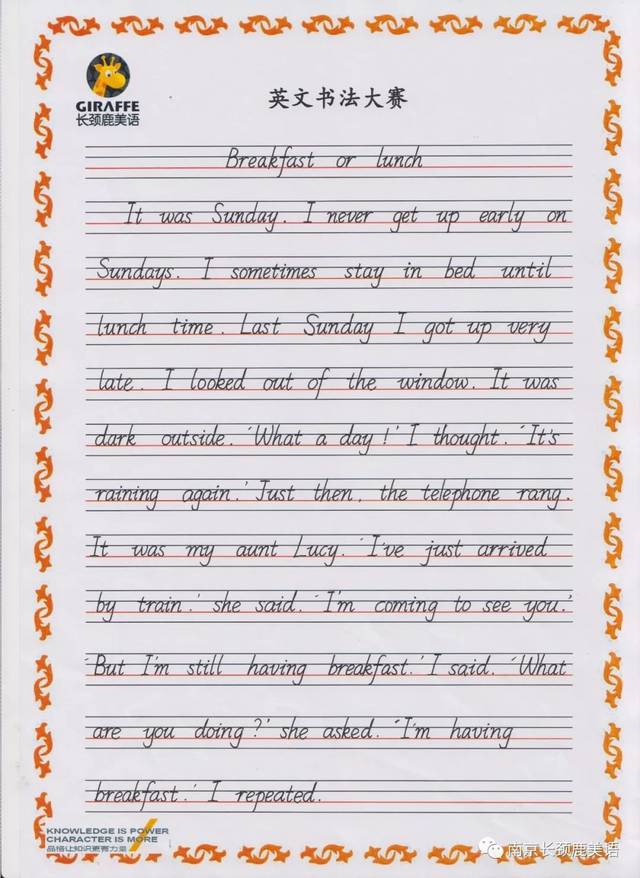 GIRAFFE
长颈鹿美语
英文书法大赛
Breakfast or lunch
It was Sunday. I never get up early on
Sundays. I sometimes stay in bed until
lunch time. Last Sunday I got up very
late. I looked out of the window. It was
dark outside. 'What a day!' I thought. 'It's
raining again.' Just then, the telephone rang.
It was my aunt Lucy. 'I've just arrived
by train.' she said. 'I'm coming to see you.'
'But I'm still having breakfast.' I said. 'What
are you doing?' she asked. 'I'm having
breakfast.' I repeated.
KNOWLEDGE IS POWER
CHARACTER IS MORE
品格让知识更有力量
南京长颈鹿美语